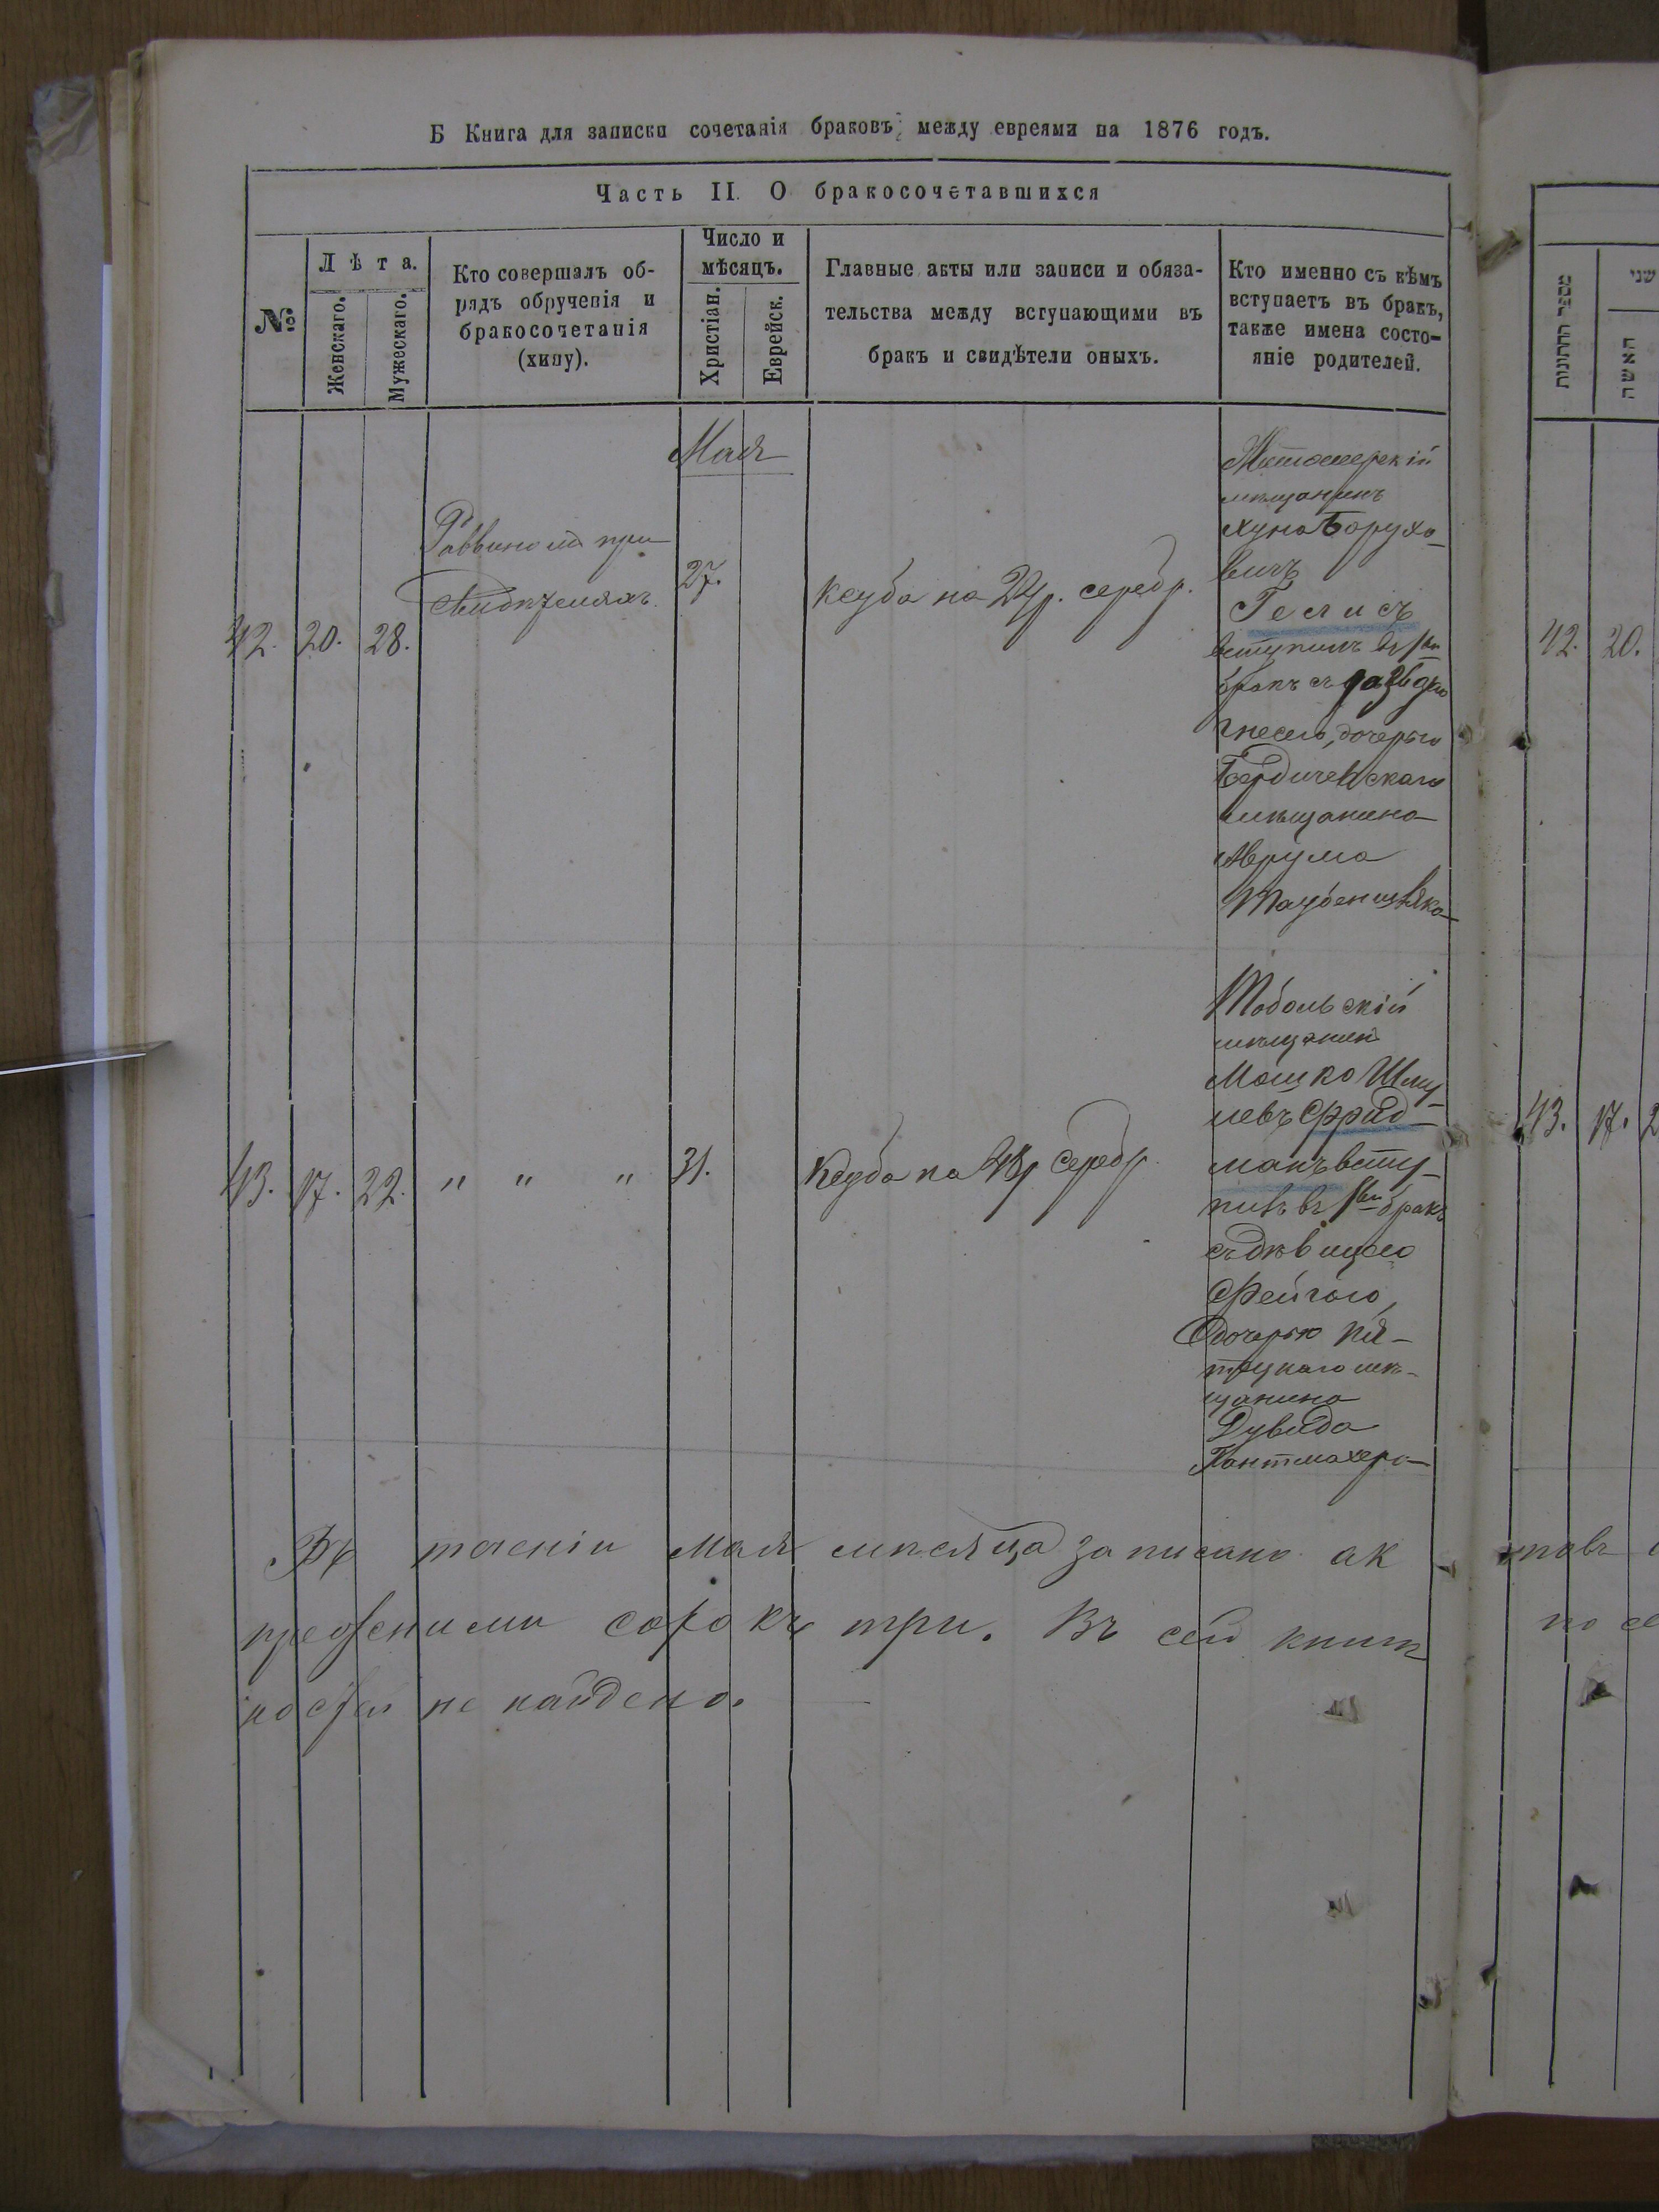 Б Книга для записки сочетанія браковъ между евреями на 1876 годъ.
Часть II. О бракосочетавшихся
№
Лѣта.
Женскаго.
Мужескаго.
Кто совершалъ об-
рядъ обрученія и
бракосочетанія
(хипу).
Число и
мѣсяцъ.
Христіан.
Еврейск.
Главные акты или записи и обяза-
тельства между вступающими въ
бракъ и свидѣтели оныхъ.
Кто именно съ кѣмъ
вступаетъ въ бракъ,
также имена состо-
яніе родителей.
מספר החתונות
שני
האשה
Мая
42.
20.
28.
Раввиномъ при
свидѣтеляхъ
27.
Кеуба на 24р. серебр.
Житомерскій
мѣщанинъ
Хуна Борухо-
вичъ
Гелисъ
вступилъ въ 1й
бракъ съ
Гнесею, дочерью
Бердичевскаго
мѣщанина
Аврума
42.
20.
43.
17.
22.
" " "
31.
Кеуба на 48р серебр.
Тобольскій
мѣщанин
Мошко Шму-
левъ Фрид-
манъ всту-
пилъ въ 1й бракъ
съ дѣвицею
Фейгою,
дочерью Пя-
тецкаго мѣ-
щанина
Дувида
Кантмахера
43.
17.
2
Въ теченіи мая мѣсяца записано ак
товъ
прежними сорокъ три. Въ сей книгѣ
по се
ностей не найдено.